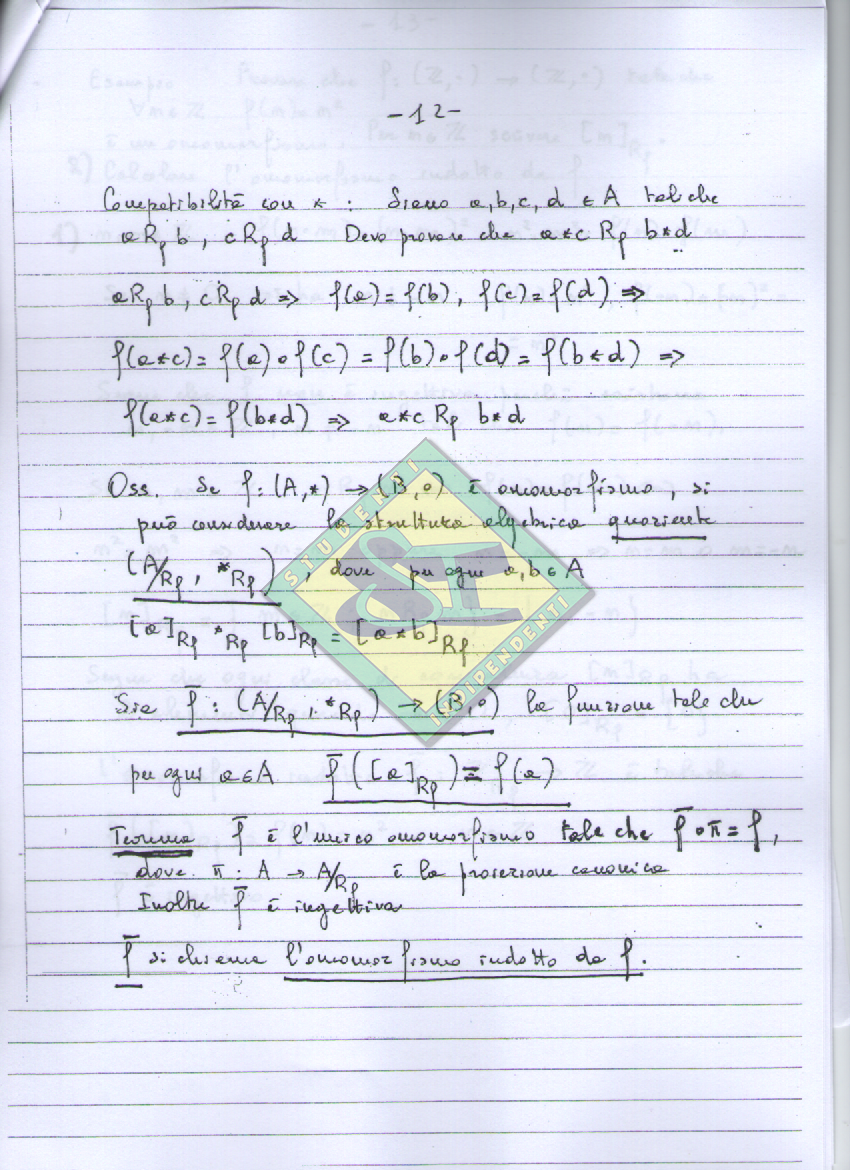 -12-
Compatibilità con * : Siano a,b,c,d ∈ A tali che
a R_f b , c R_f d Devo provare che a*c R_f b*d
a R_f b, c R_f d => f(a) = f(b), f(c) = f(d) =>
f(a*c) = f(a)∘f(c) = f(b)∘f(d) = f(b*d) =>
f(a*c) = f(b*d) => a*c R_f b*d
Oss. Se f: (A,*) → (B,∘) è omomorfismo, si
può considerare la struttura algebrica quoziente
(A/R_f , *R_f) , dove per ogni a,b ∈ A
[a]R_f *R_f [b]R_f = [a*b]R_f
Sia f̄ : (A/R_f , *R_f) → (B,∘) la funzione tale che
per ogni a ∈ A f̄([a]R_f) = f(a)
Teorema f̄ è l'unico omomorfismo tale che f̄∘π = f,
dove π : A → A/R_f è la proiezione canonica
Inoltre f̄ è iniettiva
f̄ si chiama l'omomorfismo indotto da f.
STUDENTI
SI
INDIPENDENTI